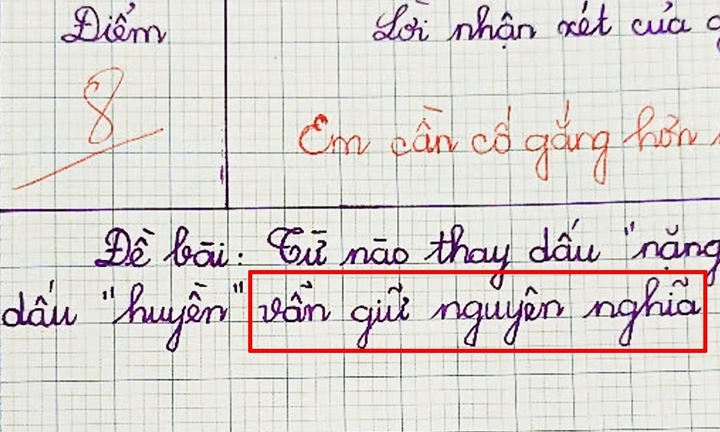 Điểm
Lời nhận xét của
8
Em cần cố gắng hơn
Đề bài: Từ nào thay dấu "nặng
dấu "huyền" vẫn giữ nguyên nghĩa